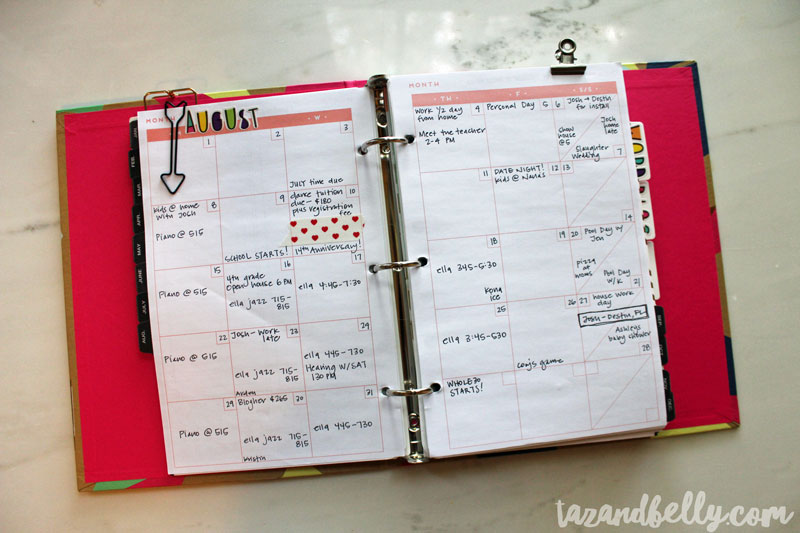 MONTH
TH F S/S
Work 1/2 day
from home
4
Meet the teacher
2-4 PM
Personal Day 5
6 Josh → Destin
for install
Josh
home
late
Show
house
@ 5
Slaughter
Wedding 7
11
DATE NIGHT! 12
kids @ Nana's
13
14
18
ella 345-5:30
Kona
ice
19
20 Pool Day w/
Jen
pizza
at
moms
Pool Day
w/K 21
25
ella 3:45-530
26
cory's game
27 house work
day
Josh-Destin, FL
Ashleys
baby shower
28
WHOLE30
STARTS!
MONTH
AUGUST
W
1
2
3
JULY time due
kids @ home 8
with JOSH
Piano @ 515
9
SCHOOL STARTS!
dance tuition 10
due - $180
plus registration
fee
14th Anniversary!
15
Piano @ 515
16
4th grade
open house 6 PM
ella jazz 715-
815
17
ella 4:45-7:30
22
Piano @ 515
Josh-Work 23
late
ella jazz 715-
815
24
ella 445-730
Hearing W/SAT
130 PM
29
Piano @ 515
Blogher $265 30
ella jazz 715-
815
31
ella 445-730
FEB.
MAR.
APR.
MAY
JUNE
JULY
AUG.
tazandbelly.com